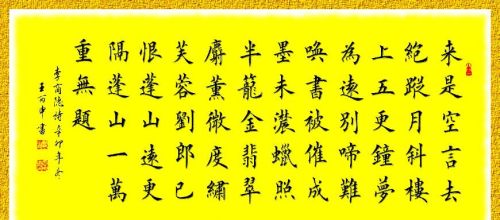 来是空言去
絕蹤月斜樓
上五更鐘夢
為遠別啼難
喚書被催成
墨未濃蠟照
半籠金翡翠
麝薰微度繡
芙蓉劉郎已
恨蓬山遠更
隔蓬山一萬
重無題
李商隐詩辛卯年冬
王丙申書